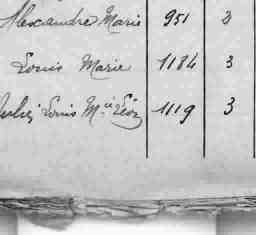 Alexandre Marie 951 3
Louis Marie 1184 3
Louis Mie Léon 1119 3